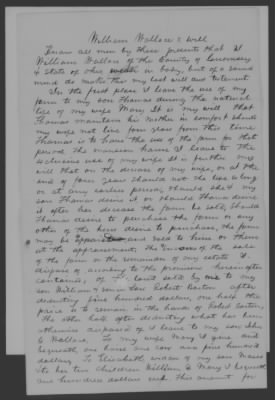 William Wallace's will
Know all men by these presents that I
William Wallace of the County of Guernsey
& State of Ohio weak in body, but of a sound
mind do make this my last will and testament
In the first place I leave the use of my
farm to my son Thomas during the natural
life of my wife Mary It is my will that
Thomas maintain his mother in comfort should
my wife not live four years from this time
Thomas is to have the use of the farm for that
period The mansion house I leave to the
exclusive use of my wife It is further my
will that on the decease of my wife, or at the
end of four years should not she live so long
or at any earlier period, should she & my
son Thomas desire it or should Thomas desire
it after her decease the farm be sold, should
Thomas desire to purchase the farm or any
other of the heirs desire to purchase, the farm
may be appraised and sold to him or them
at the appraisement The proceeds of the sale
of the farm or the remainder of my estate I
dispose of according to the provisions hereinafter
contained, of land sold by me to my
son William & son in law Robert Barton after
deducting five hundred dollars, one half the
price is to remain in the hands of Robert Barton,
The other half after deducting what has been
otherwise disposed of I leave to my son John
C Wallace. To my wife Mary I give and
bequeath, one horse one cow and five hundred
dollars, To Elizabeth widow of my son
to her two children William & Mary I bequeath
one hundred dollars each This amount for